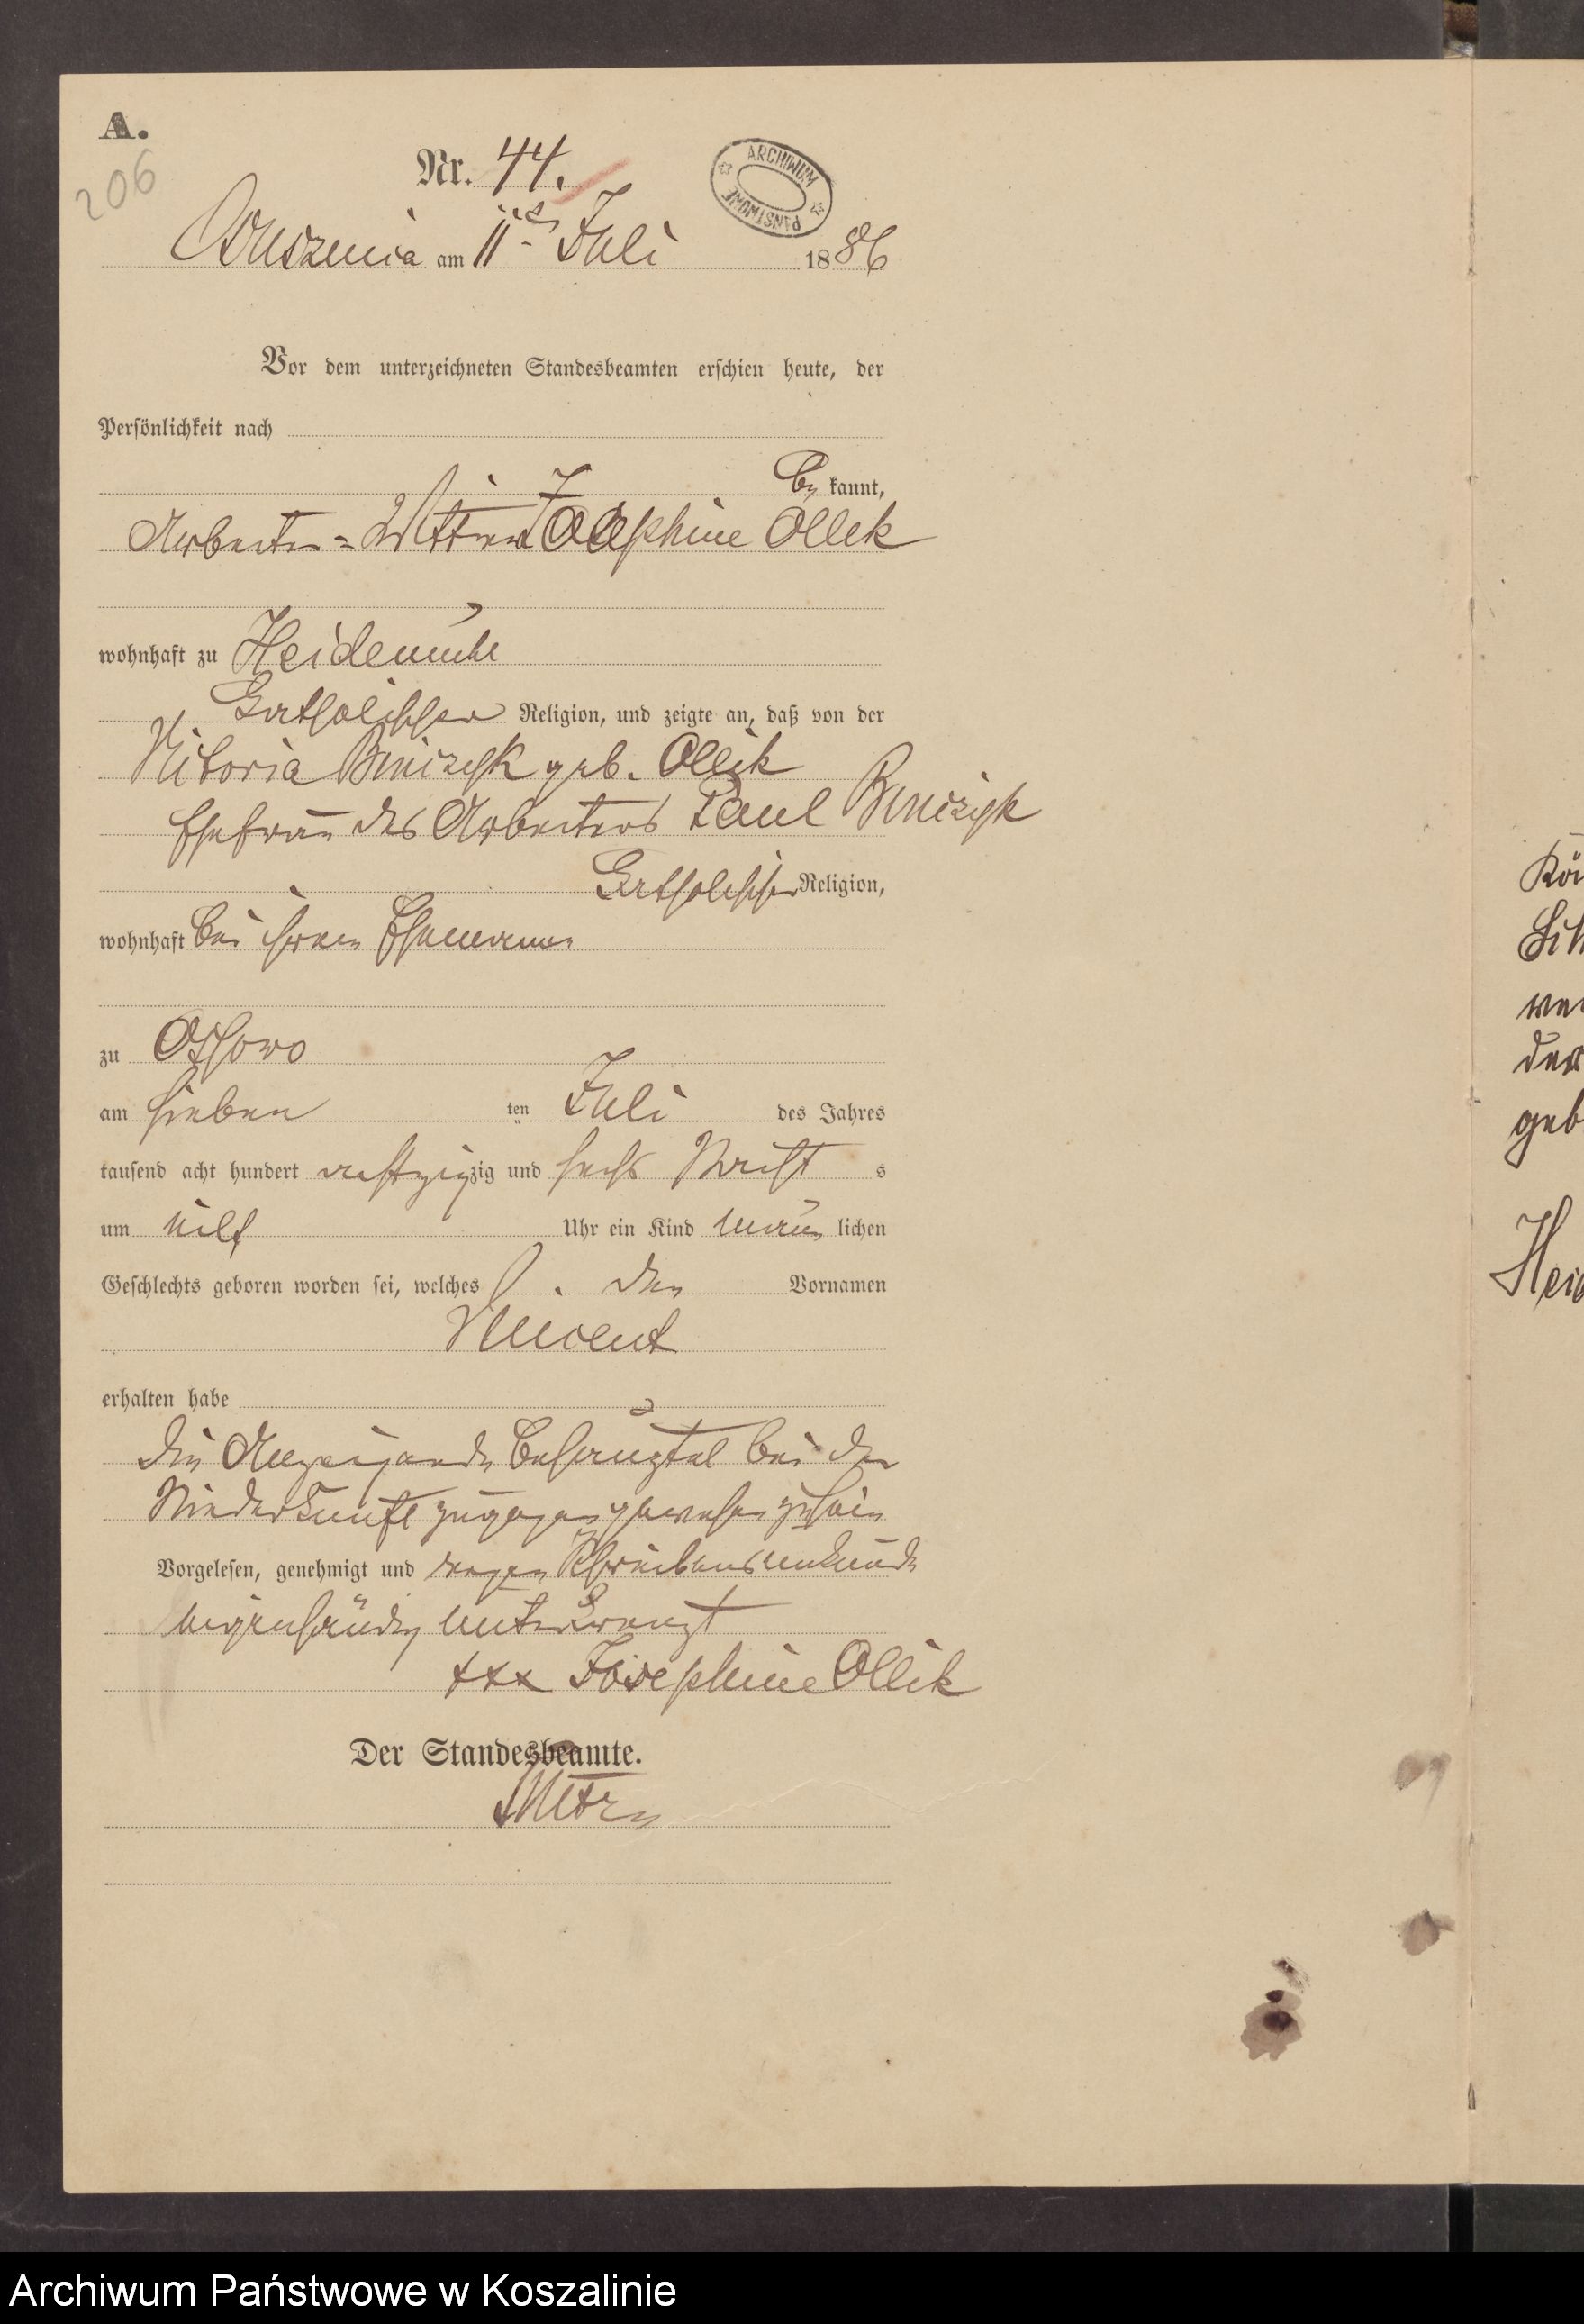 A.
206
Nr. 44.
ARCHIWUM PAŃSTWOWE
am 11ten Juli 1886
Vor dem unterzeichneten Standesbeamten erschien heute, der
Persönlichkeit nach
be kannt,
Arbeiter-Wittwe Josephine Ollik
wohnhaft zu Heidemühl
katholischer Religion, und zeigte an, daß von der
geb. Ollik
Ehefrau des Arbeiters Paul
katholischer Religion,
wohnhaft bei ihrem Ehemann
zu Ossowo
am sieben ten Juli des Jahres
tausend acht hundert achtzig zig und sechs s
um elf Uhr ein Kind männ lichen
Geschlechts geboren worden sei, welches den Vornamen
Vincent
erhalten habe
Die Anzeigende bei der
Niederkunft zugegen gewesen zu sein
Vorgelesen, genehmigt und wegen Schreibensunkunde
eigenhändig unterkreuzt
xxx Josephine Ollik
Der Standesbeamte.
Kön
der
geb
Heid
Archiwum Państwowe w Koszalinie